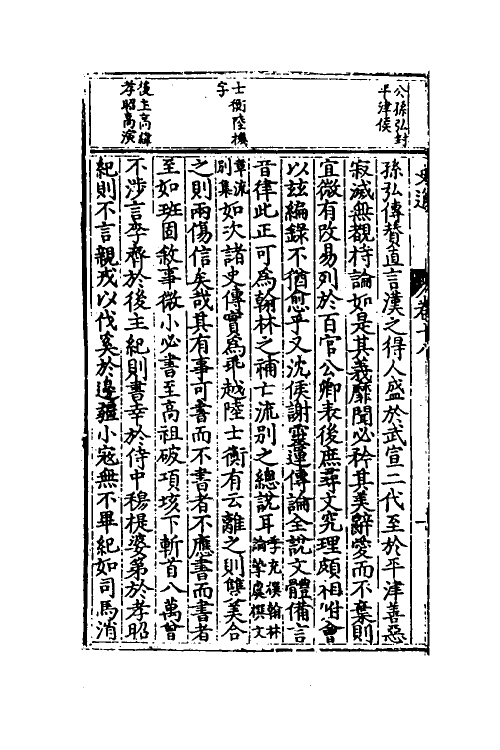 公孫弘封
平津侯
士衡陸機
字
後主高緯
孝昭高演
史通
卷十八
孫弘傳贊直言漢之得人盛於武宣二代至於平津善惡
寂滅無覩持論如是其義靡聞必矜其美辭愛而不棄則
宜微有改易列於百官公卿表後庶尋文究理頗相附會
以玆編錄不猶愈乎又沈侯謝靈運傳論全說文體備言
音律此正可為翰林之補亡流别之總說耳李充撰翰林論摯虞撰文
章流别集如次諸史傳實為乖越陸士衡有云離之則雙美合
之則兩傷信矣哉其有事可書而不書者不應書而書者
至如班固敘事微小必書至高祖破項垓下斬首八萬曾
不涉言李齊於後主紀則書幸於侍中穆提婆第於孝昭
紀則不言親戎以伐奚於邊疆小寇無不畢紀如司馬消